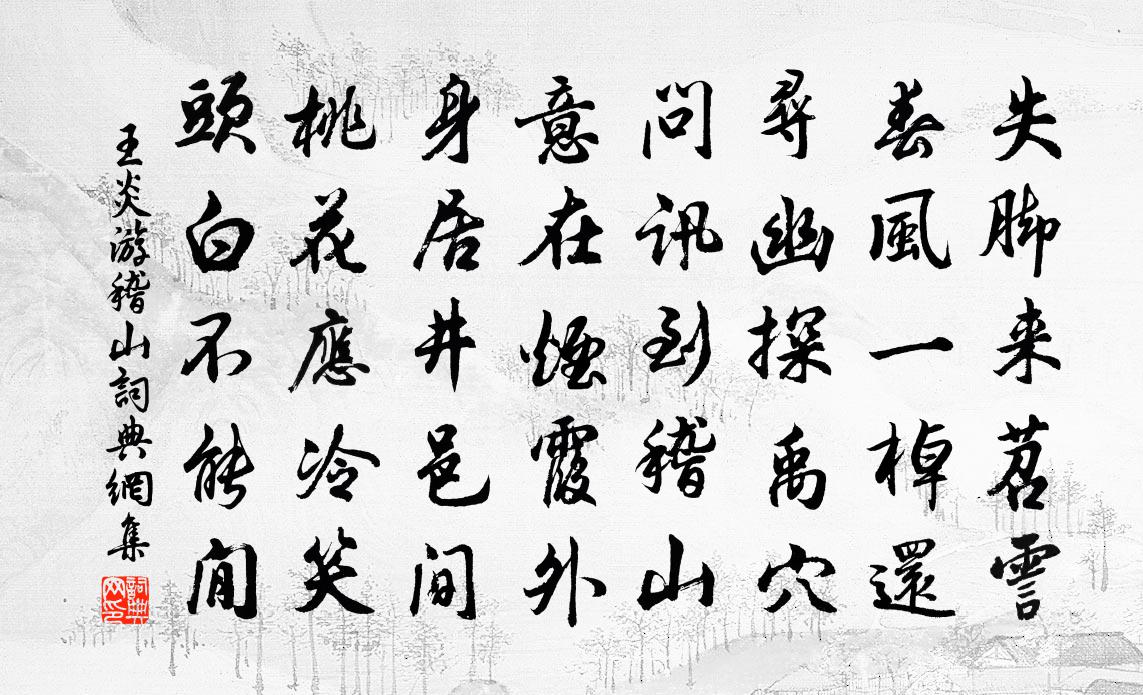 失脚来苕霅
春風一棹還
尋幽探禹穴
問訊到稽山
意在煙霞外
身居井邑間
桃花應冷笑
頭白不能閒
王炎游稽山詞典網集
詞典